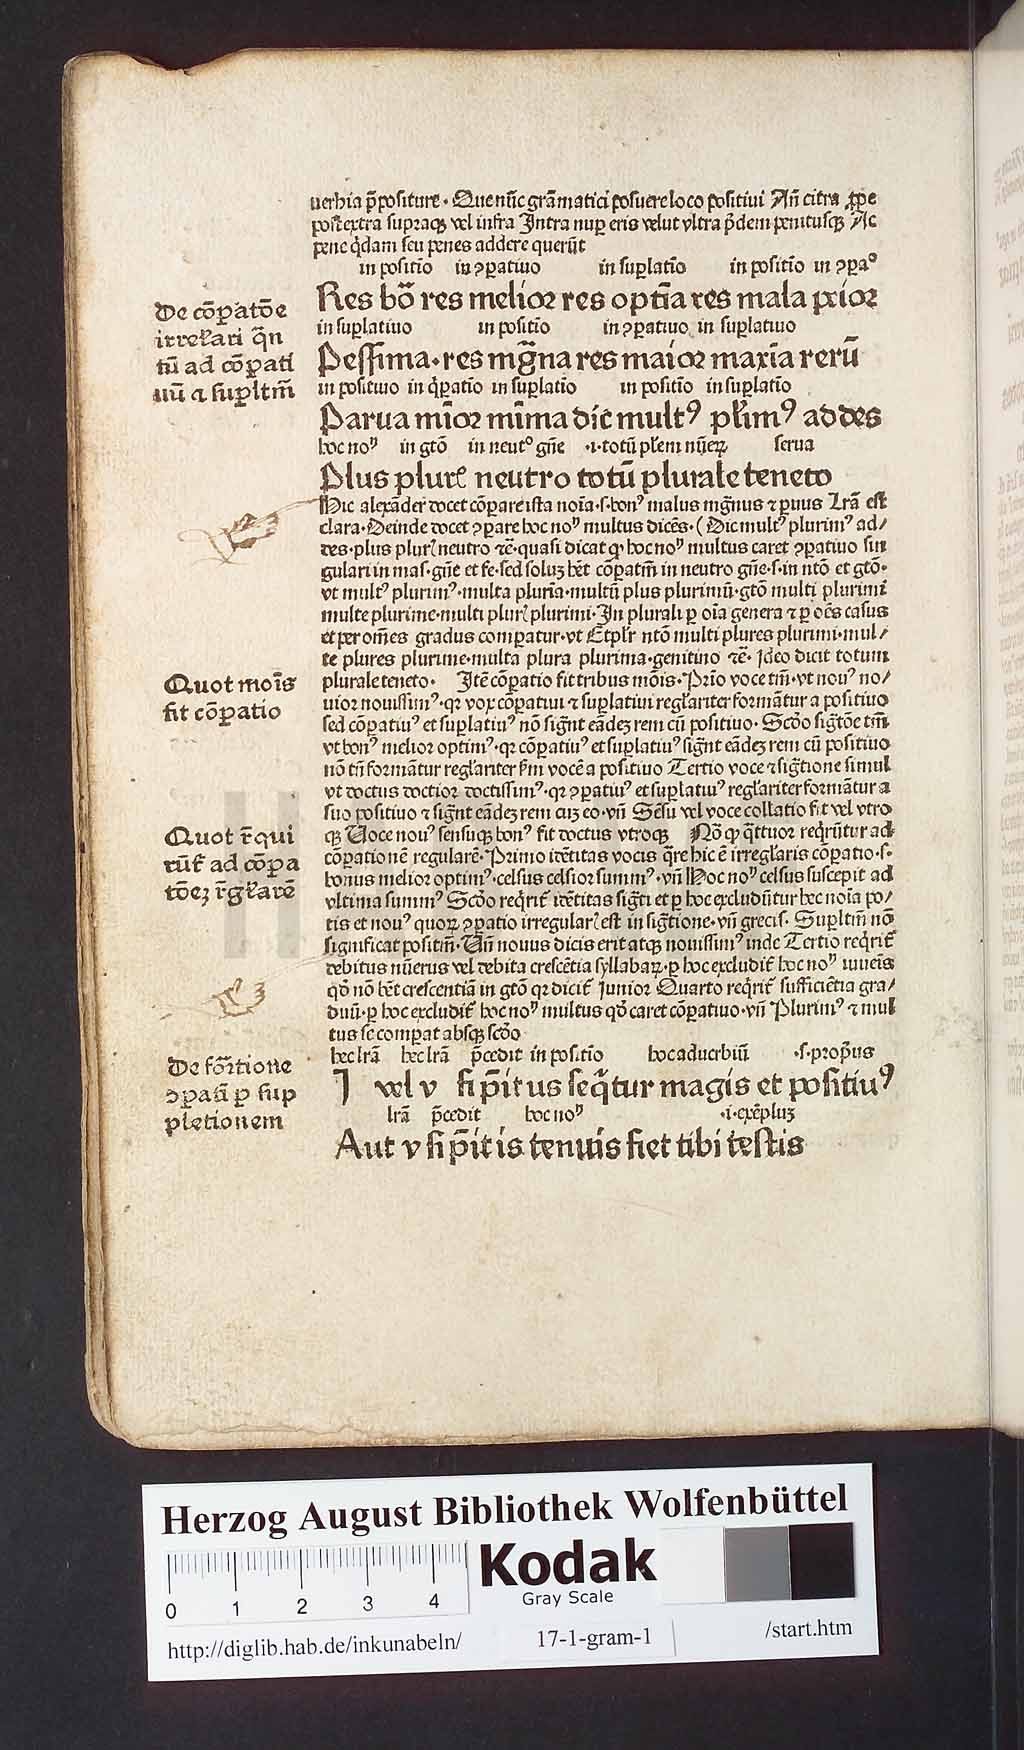 uerbia p̄positure · Que nūc grāmatici posuere loco positiui Añ citra ꝓpe
post extra supraqꝫ vel infra Intra nuꝑ eris velut vltra p̄dem penitusqꝫ Ac
pene q̄dam seu penes addere querūt
in positīo in ꝯꝑatiuo in suꝑlatīo in positīo in ꝯꝑa°
De cōꝑatōe
irreɫari q̄n
tū ad cōꝑati
uū ⁊ suꝑltm̄
Res bōa res melior res optīa res mala peior
in suꝑlatiuo in positīo in ꝯꝑatiuo in suꝑlatiuo
Pessima · res mg̃na res maior maxīa rerū
in positiuo in ꝯꝑatīo in suꝑlatīo in positīo in suꝑlatīo
Parua mīor mīma dic multꝰ pɫimꝰ ad des
hoc noᵐ in gtō in neutᵒ gn̄e ·i· totū pɫem nūeꝝ serua
Plus plurꝭ neutro totū plurale teneto
Hic alexāder docet cōꝑare ista noīa ·s· bonꝰ malus mg̃nus ⁊ ꝑuus Lr̄a est
clara · Deinde docet ꝯꝑare hoc noᵐ multus dicēs · ( Dic multꝰ plurimꝰ ad/
des · plus plurꝭ neutro ⁊c̄ · quasi dicat ꝙ hoc noᵐ multus caret ꝯꝑatiuo sin
gulari in mas · gn̄e et fe · sed soluꝫ hēt cōꝑatm̄ in neutro gn̄e · s · in ntō et gtō ·
vt multꝰ plurimꝰ · multa plurīa · multū plus plurimū · gtō multi plurimi
multe plurime · multi plurꝭ plurimi · In plurali ꝑ oīa genera ⁊ ꝑ oēs casus
et per om̄es gradus comꝑatur · vt Et pɫr ntō multi plures plurimi · mul/
te plures plurime · multa plura plurima · genitino ⁊c̄ · Ideo dicit totum
Quot moīs
fit cōꝑatio
plurale teneto · Itē cōꝑatio fit tribus mōis · Prīo voce tm̄ · vt nouꝰ no/
uior nouissimꝰ · qꝛ vox cōꝑatiui ⁊ suꝑlatiui regɫariter formātur a positiuo
sed cōꝑatiuꝰ et suꝑlatiuꝰ nō sigñt eādeꝫ rem cū positiuo · Scd̄o sigtōe tm̄
vt bonꝰ melior optimꝰ · qꝛ cōꝑatiuꝰ et suꝑlatiuꝰ sigñt eādeꝫ rem cū positiuo
nō tñ formātur regɫariter ẜm vocē a positiuo Tertio voce ⁊ sigtione simul
vt doctus doctior doctissimꝰ · qꝛ ꝯꝑatiuꝰ et suꝑlatiuꝰ regɫariter formātur a
suo positiuo ⁊ sigñt eādeꝫ rem cuꝫ eo · vñ Sēsu vel voce collatio fit vel vtro
Quot r̄qui
rūt̄ ad cōꝑa
tōeꝫ r̄gɫarē
qꝫ Uoce nouꝰ sensuqꝫ bonꝰ fit doctus vtroqꝫ Nō ꝙ q̄ttuor req̄rūtur ad
cōꝑationē regularē · Primo idētitas vocis q̄re hic ē irregɫaris cōꝑatio · s ·
bonus melior optimꝰ · celsus celsior summꝰ · vñ Hoc noᵐ celsus suscepit ad
vltima summꝰ Scd̄o req̄rit̄ idētitas sigti et ꝑ hoc excludūtur hec noīa po/
tis et nouꝰ quoꝝ ꝯꝑatio irregularꝭ est in sigtione · vñ grecis · Suꝑltm̄ nō
significat positm̄ · Uñ nouus dicis erit atqꝫ nouissimꝰ inde Tertio req̄rit̄
debitus nūerus vel debita crescētia syllabaꝝ · ꝑ hoc excludit̄ hoc noᵐ iuuēis
qd̄ nō hēt crescentiā in gtō qꝛ dicit̄ Iunior Quarto req̄rit̄ sufficiētia gra/
duū · ꝑ hoc excludit̄ hoc noᵐ multus qd̄ caret cōꝑatiuo · vñ Plurimꝰ ⁊ mul
tus se comꝑat absqꝫ scd̄o
De for̄tione
ꝯꝑati ꝑ sup
pletionem
hec lr̄a hec lr̄a p̄cedit in positīo hoc aduerbiū ·s· proprius
I vel v si p̄it us seq̄tur magis et positiuꝰ
lr̄a p̄cedit hoc noᵐ ·i· exēpluꝫ
Aut v si p̄it is tenuis fiet tibi testis
Herzog August Bibliothek Wolfenbüttel
0 1 2 3 4
Kodak
Gray Scale
http://diglib.hab.de/inkunabeln/
17-1-gram-1
/start.htm